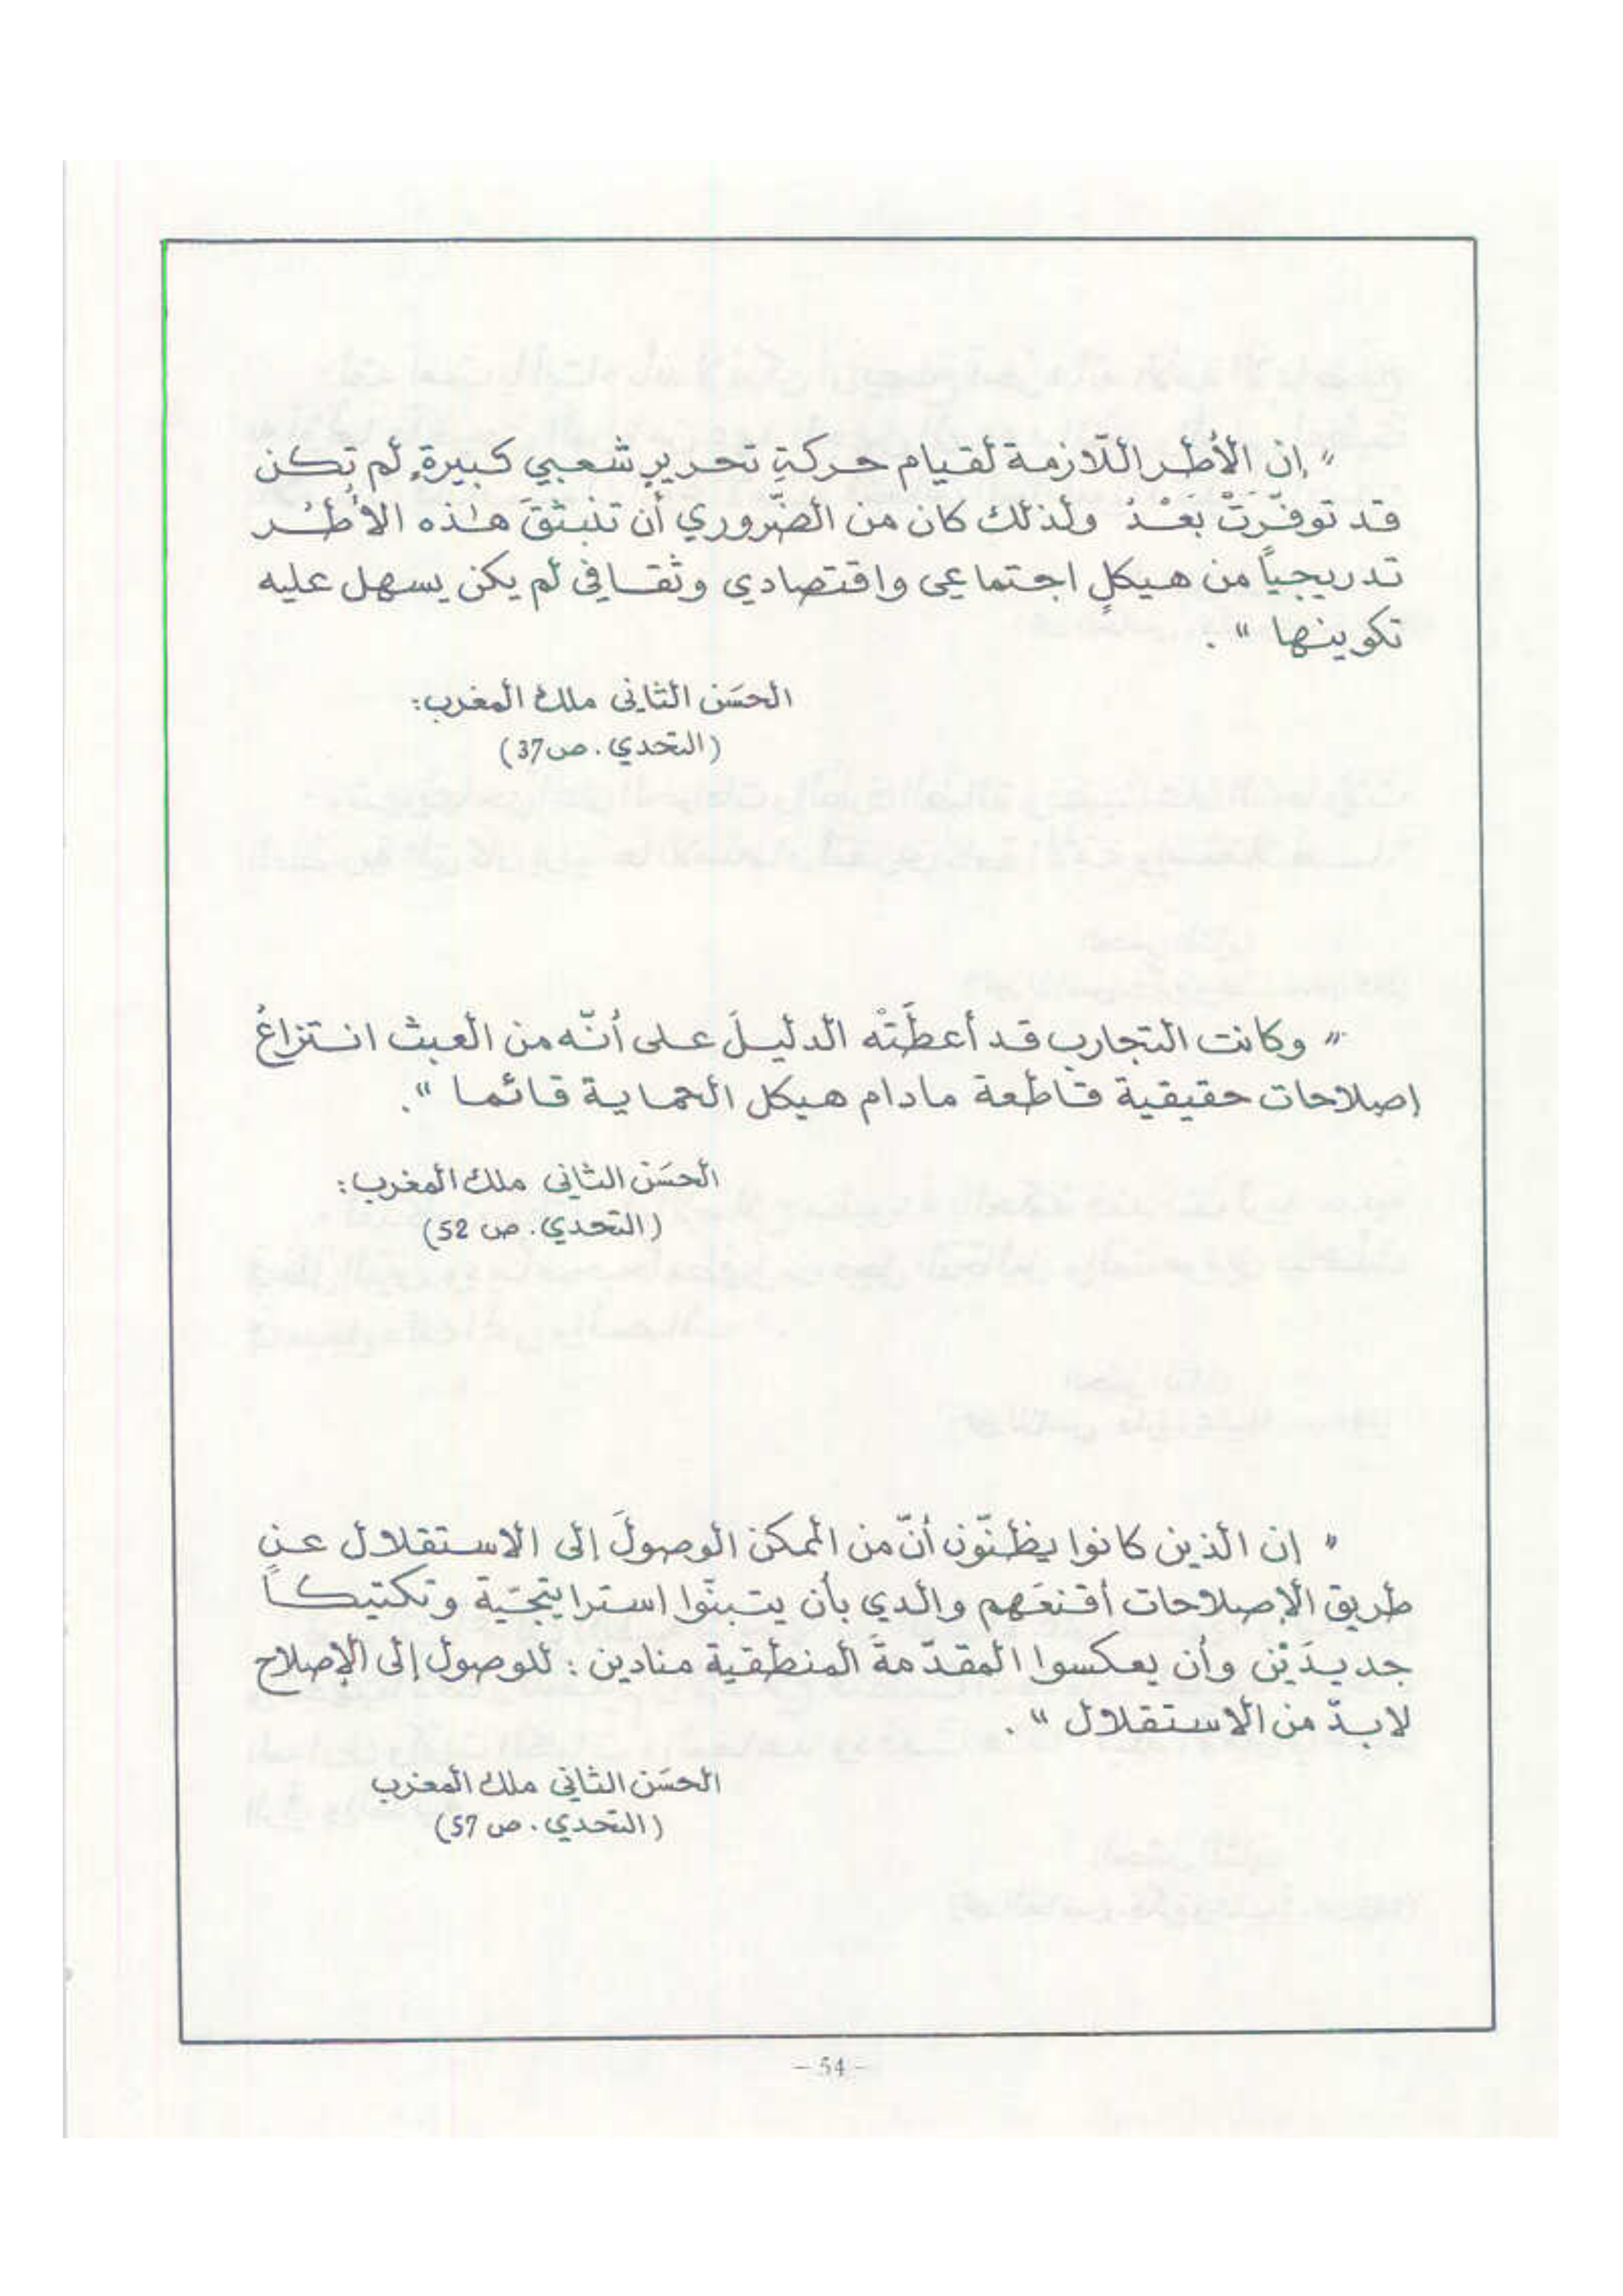 " إن الأُطر اللّازمة لقيام حركةِ تحريرٍ شعبي كبيرةٍ لم تكن
قد توفّرَتْ بَعْدُ ولذلك كان من الضّروري أن تنبثقَ هٰذه الأُطُر
تدريجياً من هيكلٍ اجتماعي واقتصادي وثقافي لم يكن يسهل عليه
تكوينها " .
الحسَن الثاني ملك المغرب:
(التحدي . ص 37)
" وكانت التجارب قد أعطَتْه الدليلَ على أنّه من العبث انتزاعُ
إصلاحات حقيقية قاطعة مادام هيكل الحماية قائما ".
الحسَن الثاني ملك المغرب:
(التحدي . ص 52)
" إن الذين كانوا يظنّون أنّ من الممكن الوصولَ إلى الاستقلال عن
طريق الإصلاحات أقنعَهم والدي بأن يتبنّوا استراتيجيّة وتكتيكاً
جديدَيْن وأن يعكسوا المقدّمةَ المنطقية منادين : للوصول إلى الإصلاح
لابدّ من الاستقلال " .
الحسَن الثاني ملك المغرب
(التحدي . ص 57)
- 54 -